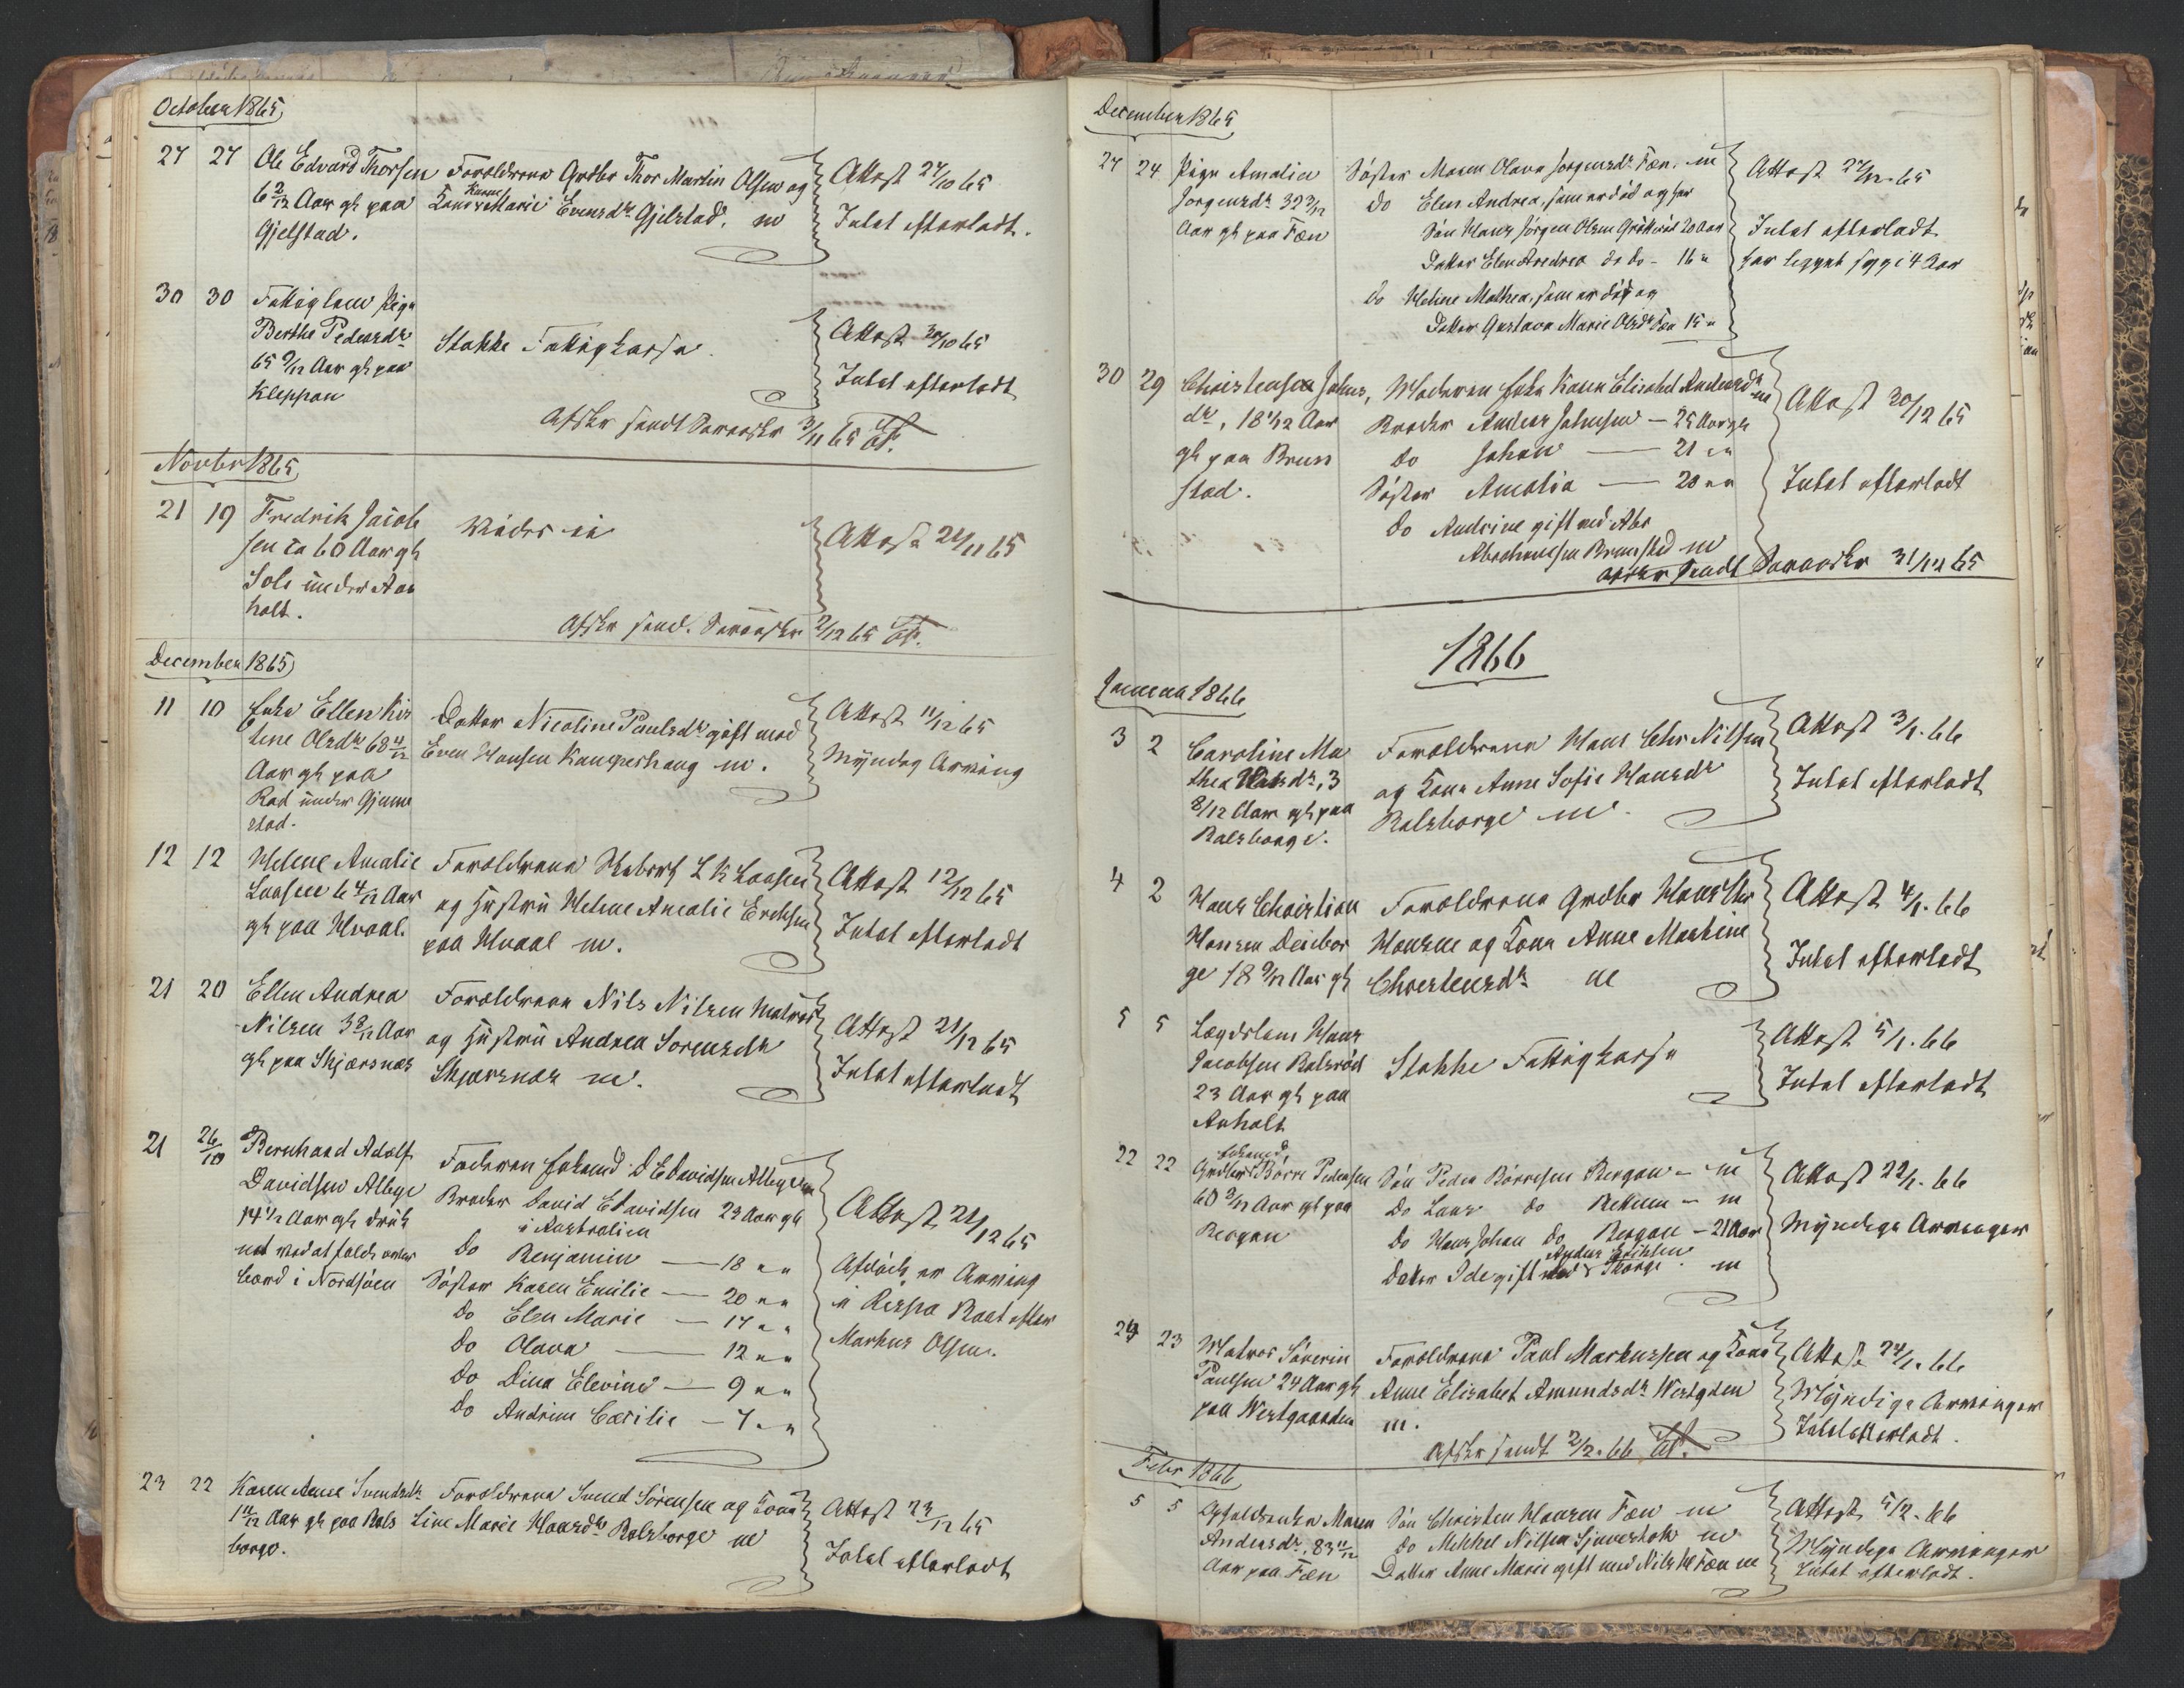 October 1865
27 27 Ole Edvard Thorsen Forældrene Grdbr Thor Martin Olsen og Attest 27/10 65
6 2/12 Aar gl paa Kone Karen Marie Evensdr Gjelstad. m Intet efterladt.
Gjelstad.
30 30 Fattiglem Pige
Berthe Pedersdr Stokke Fattigkasse. Attest 30/10 65
65 9/12 Aar gl paa Intet efterladt
Kleppan
Afskr sendt Sorenskr 3/11 65
Novbr 1865
21 19 Fredrik Jacob Attest 21/11 65
sen ca 60 Aar gl
Sole under Aa
holt.
Afskr send. Sorenskr 2/12 65
December 1865
11 10 Enke Ellen Kir Datter Nicoline Paulsdr gift med Attest 11/12 65
stine Olsdr 68 11/12 Even Hansen Kamperhaug m. Myndig Arving
Aar gl paa
Rød under Gjenne
stad.
12 12 Helene Amalie Forældrene Skibsrh L K Laasen Attest 12/12 65
Laasen 6 4/12 Aar og Hustru Helene Amalie Erchsen Intet efterladt
gl paa Hvaal. paa Hvaal m.
21 20 Ellen Andrea Forældrene Nils Nilsen Matros Attest 21/12 65
Nilsen 3 8/12 Aar og Hustru Andrea Sorensdr Intet efterladt
gl paa Skjærsnæs Skjærsnæs m.
21 26/10 Bernhard Adolf Faderen Enkemd D E Davidsen
Davidsen Broder David E Davidsen 23 Aar gl Attest 21/12 65
14 1/2 Aar gl druk i Australien
net ved at falde over Do Benjamin — 18 " " Afdøde er Arving
bord i Nordsøen Søster Karen Emilie — 20 " " efter
Do Elen Marie — 17 " " Markus Olsen.
Do Olava — 12 " "
Do Dina Elevine — 9 " "
Do Andrine Cecilie — 7 " "
23 22 Karen Anne Svendsdr Forældrene Svend Sørensen og Kone Attest 23/12 65
1 11/12 Aar gl paa Rols Line Marie Hansdr Rolsborge m Intet efterladt
borge.
December 1865
27 24 Pige Amalia Søster Maren Olava Jørgensdr Fæn. m Attest 27/12 65
Jorgensdr 32 3/12 Do Elen Andrea, som er død og har
Aar gl paa Fæn Søn Hans Jørgen Olsen 20 Aar Intet efterladt
Datter Elen Andrea do do - 16 " har ligget syg i 4 Aar
Do Heline Mathea, som er død og
Datter Gustava Marie Olsdr Fæn 15 "
30 29 Christense Johns, Moderen Enke Karen Elisabet Andersdr m Attest 30/12 65
dr, 18 1/12 Aar Broder Anders Johnsen — 25 Aar gl
gl paa Bruns Do Johan — 21 " "
stad. Søster Amalia — 20 " " Intet efterladt
Do Andrine gift med Abr
Abrahamsen Brunstad m
Afskr sendt Sorenskr 31/12 65
1866
Januar 1866
3 2 Caroline Ma Forældrene Hans Chr Nilsen Attest 3/1. 66
thea Hansdr, 3 og Kone Anne Sofie Hansdr Intet efterladt
8/12 Aar gl paa Rolsborge m.
Rolsborge.
4 2 Hans Christian Forældrene Grdbr Hans Chr Attest 4/1. 66
Hansen Deichor Hansen og Kone Anne Martine Intet efterladt
ge 18 9/12 Aar gl Christensdr m
5 5 Lægdslem Hans Attest 5/1. 66
Jacobsen Rolsrød Stokke Fattigkasse Intet efterladt
23 Aar gl paa
Anholt
22 22 Enkemd, Grdbr Børre Pedersen Søn Peder Børresen Bergan — m Attest 22/1. 66
60 3/12 Aar gl paa Do Lars do — m
Bergan Do Hans Johan do Bergan — 21 Aar Myndige Arvinger
Datter Ide gift med Anders Eriksen . m
24 23 Matros Søverin Forældrene Paul Markussen og Kone Attest 24/1. 66
Paulsen 24 Aar gl Anne Elisabet Amundsdr Westgden Myndige Arvinger
paa Westgaarden m. Intet efterladt.
Afskr sendt 2/2. 66
Febr 1866
5 5 Opholdsenke Maren Søn Christen Hansen Fæn m Attest 5/2. 66
Andersdr, 83 11/12 Do Mikkel Nilsen m Myndige Arvinger
Aar paa Fæn Datter Anne Marie gift med Nils Fæn m Intet efterladt.